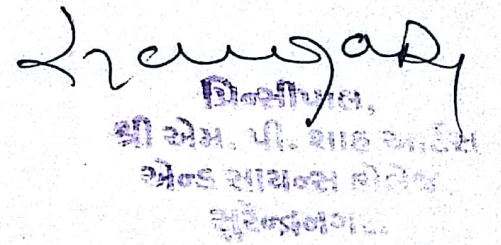 પ્રિન્સીપાલ,
શ્રી એમ. પી. શાહ આર્ટસ
એન્ડ સાયન્સ કોલેજ
સુરેન્દ્રનગર.